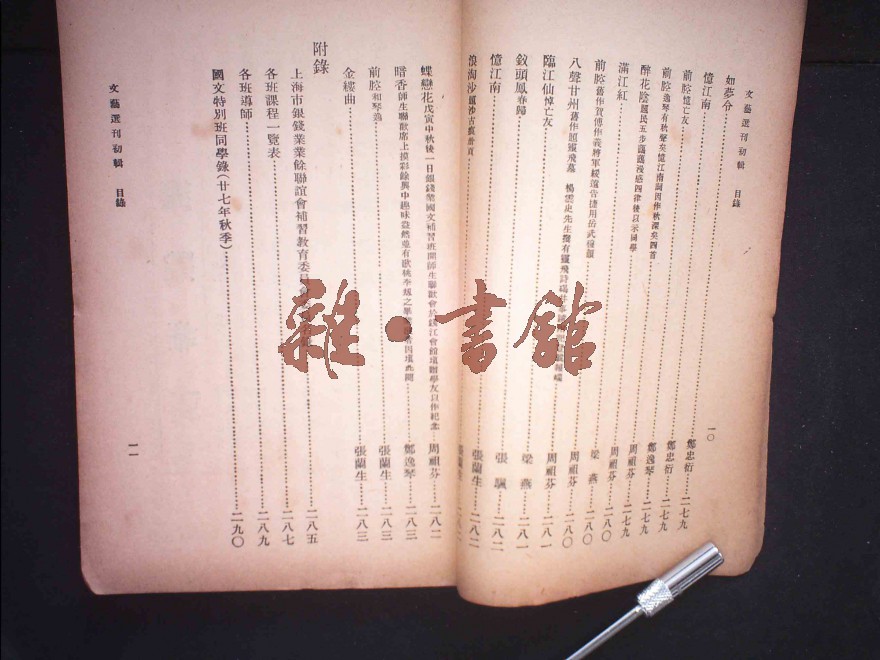 文藝選刊初輯 目錄
一〇
如夢令……鄭忠衍 二七九
憶江南……鄭忠衍 二七九
前腔憶亡友……鄭逸琴 二七九
前腔逸琴有秋聲矣憶江南詞因作秋深矣四首……周祖芬 二七九
醉花陰……周祖芬 二八〇
滿江紅……梁燕 二八〇
前腔舊作賀傅作義將軍綏遠告捷用岳武穆韻……周祖芬 二八〇
八聲甘州舊作題靈飛墓 楊雲史先生擬有靈飛詩碣……周祖芬 二八一
臨江仙悼亡友……梁燕 二八一
釵頭鳳春歸……張 二八二
憶江南……張蘭生 二八二
浪淘沙
蝶戀花戊寅中秋後一日銀錢業國文補習班開師生聯歡會於錢江會館填贈學友以作紀念……周祖芬 二八二
暗香師生聯歡席上摸彩餘興中趣味盎然並有歌桃李……鄭逸琴 二八三
前腔和琴逸……張蘭生 二八三
金縷曲……張蘭生 二八三
附錄
上海市銀錢業業餘聯誼會補習教育委員會……二八五
各班課程一覽表……二八七
各班導師……二八九
國文特別班同學錄(廿七年秋季)……二九〇
文藝選刊初輯 目錄
一一
雜·書館